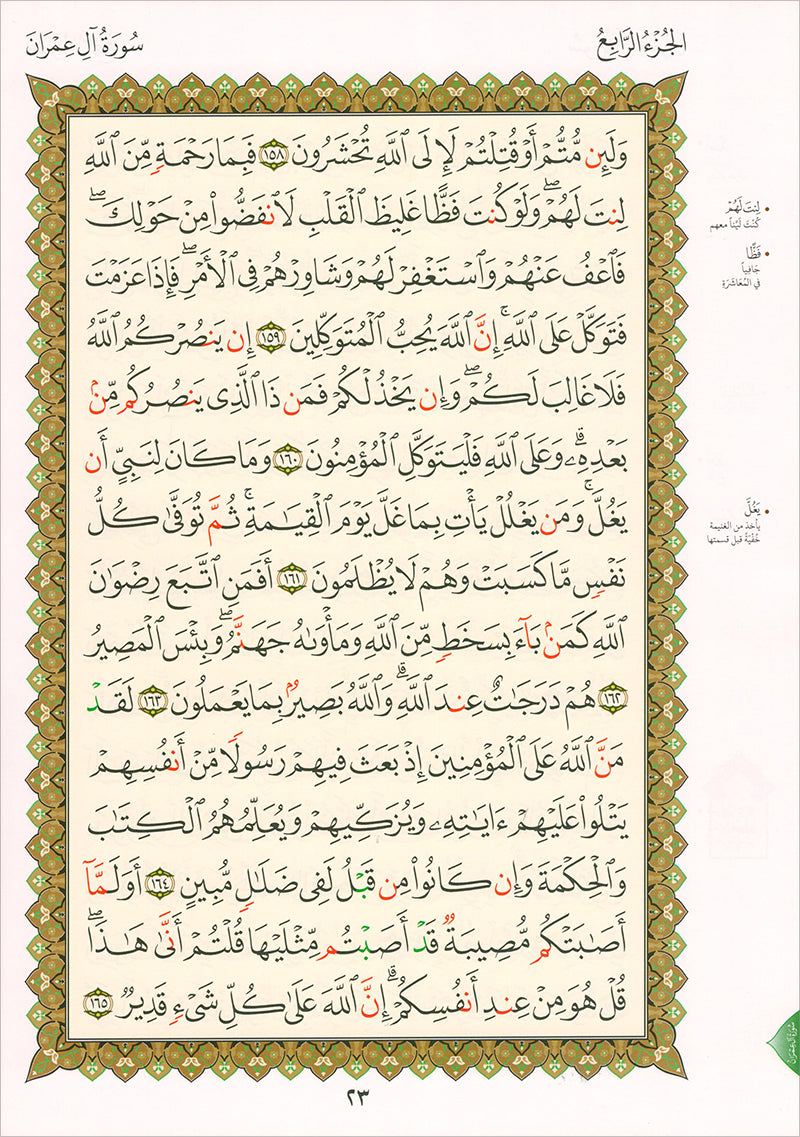 الجُزْءُ الرَّابِعُ
سُورَةُ آلِ عِمْرَانَ
وَلَئِن مُّتُّمْ أَوْ قُتِلْتُمْ لَإِلَى ٱللَّهِ تُحْشَرُونَ ١٥٨ فَبِمَا رَحْمَةٍ مِّنَ ٱللَّهِ
لِنتَ لَهُمْ ۖ وَلَوْ كُنتَ فَظًّا غَلِيظَ ٱلْقَلْبِ لَٱنفَضُّوا۟ مِنْ حَوْلِكَ ۖ
فَٱعْفُ عَنْهُمْ وَٱسْتَغْفِرْ لَهُمْ وَشَاوِرْهُمْ فِى ٱلْأَمْرِ ۖ فَإِذَا عَزَمْتَ
فَتَوَكَّلْ عَلَى ٱللَّهِ ۚ إِنَّ ٱللَّهَ يُحِبُّ ٱلْمُتَوَكِّلِينَ ١٥٩ إِن يَنصُرْكُمُ ٱللَّهُ
فَلَا غَالِبَ لَكُمْ ۖ وَإِن يَخْذُلْكُمْ فَمَن ذَا ٱلَّذِى يَنصُرُكُم مِّنۢ
بَعْدِهِۦ ۗ وَعَلَى ٱللَّهِ فَلْيَتَوَكَّلِ ٱلْمُؤْمِنُونَ ١٦٠ وَمَا كَانَ لِنَبِىٍّ أَن
يَغُلَّ ۚ وَمَن يَغْلُلْ يَأْتِ بِمَا غَلَّ يَوْمَ ٱلْقِيَٰمَةِ ۚ ثُمَّ تُوَفَّىٰ كُلُّ
نَفْسٍ مَّا كَسَبَتْ وَهُمْ لَا يُظْلَمُونَ ١٦١ أَفَمَنِ ٱتَّبَعَ رِضْوَٰنَ
ٱللَّهِ كَمَنۢ بَآءَ بِسَخَطٍ مِّنَ ٱللَّهِ وَمَأْوَىٰهُ جَهَنَّمُ ۖ وَبِئْسَ ٱلْمَصِيرُ
١٦٢ هُمْ دَرَجَٰتٌ عِندَ ٱللَّهِ ۗ وَٱللَّهُ بَصِيرٌۢ بِمَا يَعْمَلُونَ ١٦٣ لَقَدْ
مَنَّ ٱللَّهُ عَلَى ٱلْمُؤْمِنِينَ إِذْ بَعَثَ فِيهِمْ رَسُولًا مِّنْ أَنفُسِهِمْ
يَتْلُوا۟ عَلَيْهِمْ ءَايَٰتِهِۦ وَيُزَكِّيهِمْ وَيُعَلِّمُهُمُ ٱلْكِتَٰبَ
وَٱلْحِكْمَةَ وَإِن كَانُوا۟ مِن قَبْلُ لَفِى ضَلَٰلٍ مُّبِينٍ ١٦٤ أَوَلَمَّآ
أَصَٰبَتْكُم مُّصِيبَةٌ قَدْ أَصَبْتُم مِّثْلَيْهَا قُلْتُمْ أَنَّىٰ هَٰذَا ۖ
قُلْ هُوَ مِنْ عِندِ أَنفُسِكُمْ ۗ إِنَّ ٱللَّهَ عَلَىٰ كُلِّ شَىْءٍ قَدِيرٌ ١٦٥
• لِنتَ لَهُمْ
كُنْتَ لَيِّناً معهم
• فَظًّا
جَافِياً
في المُعَاشَرَةِ
• يَغُلَّ
يأخذ من الغنيمة
خُفْيَةً قبل قسمتها
سُورَةُ آلِ عِمْرَانَ
٢٣